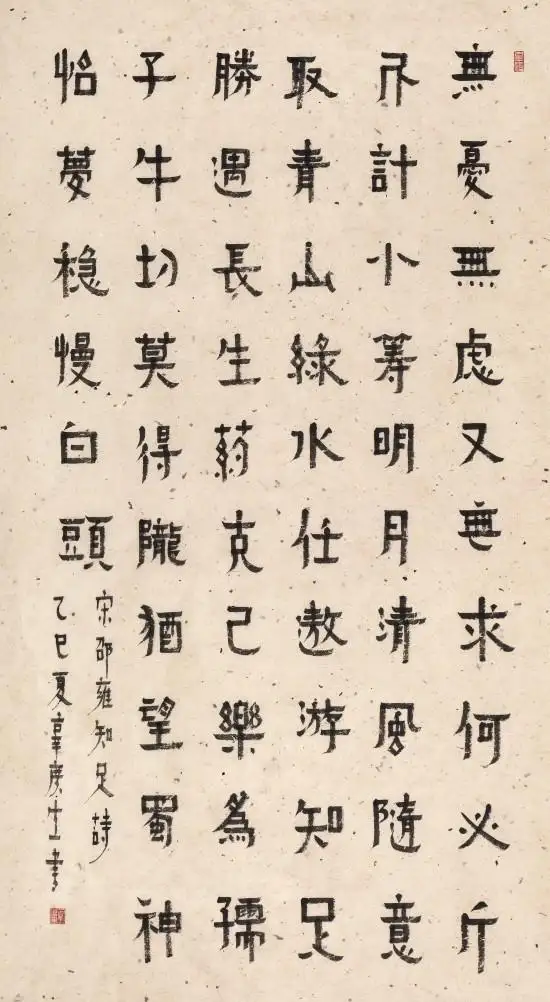 無憂無虑又無求何必斤
斤計小筹明月清風隨意
取青山綠水任遨游知足
勝遇長生葯克己樂為孺
子牛切莫得隴猶望蜀神
怡夢稳慢白頭
宋邵雍知足詩
乙巳夏生書